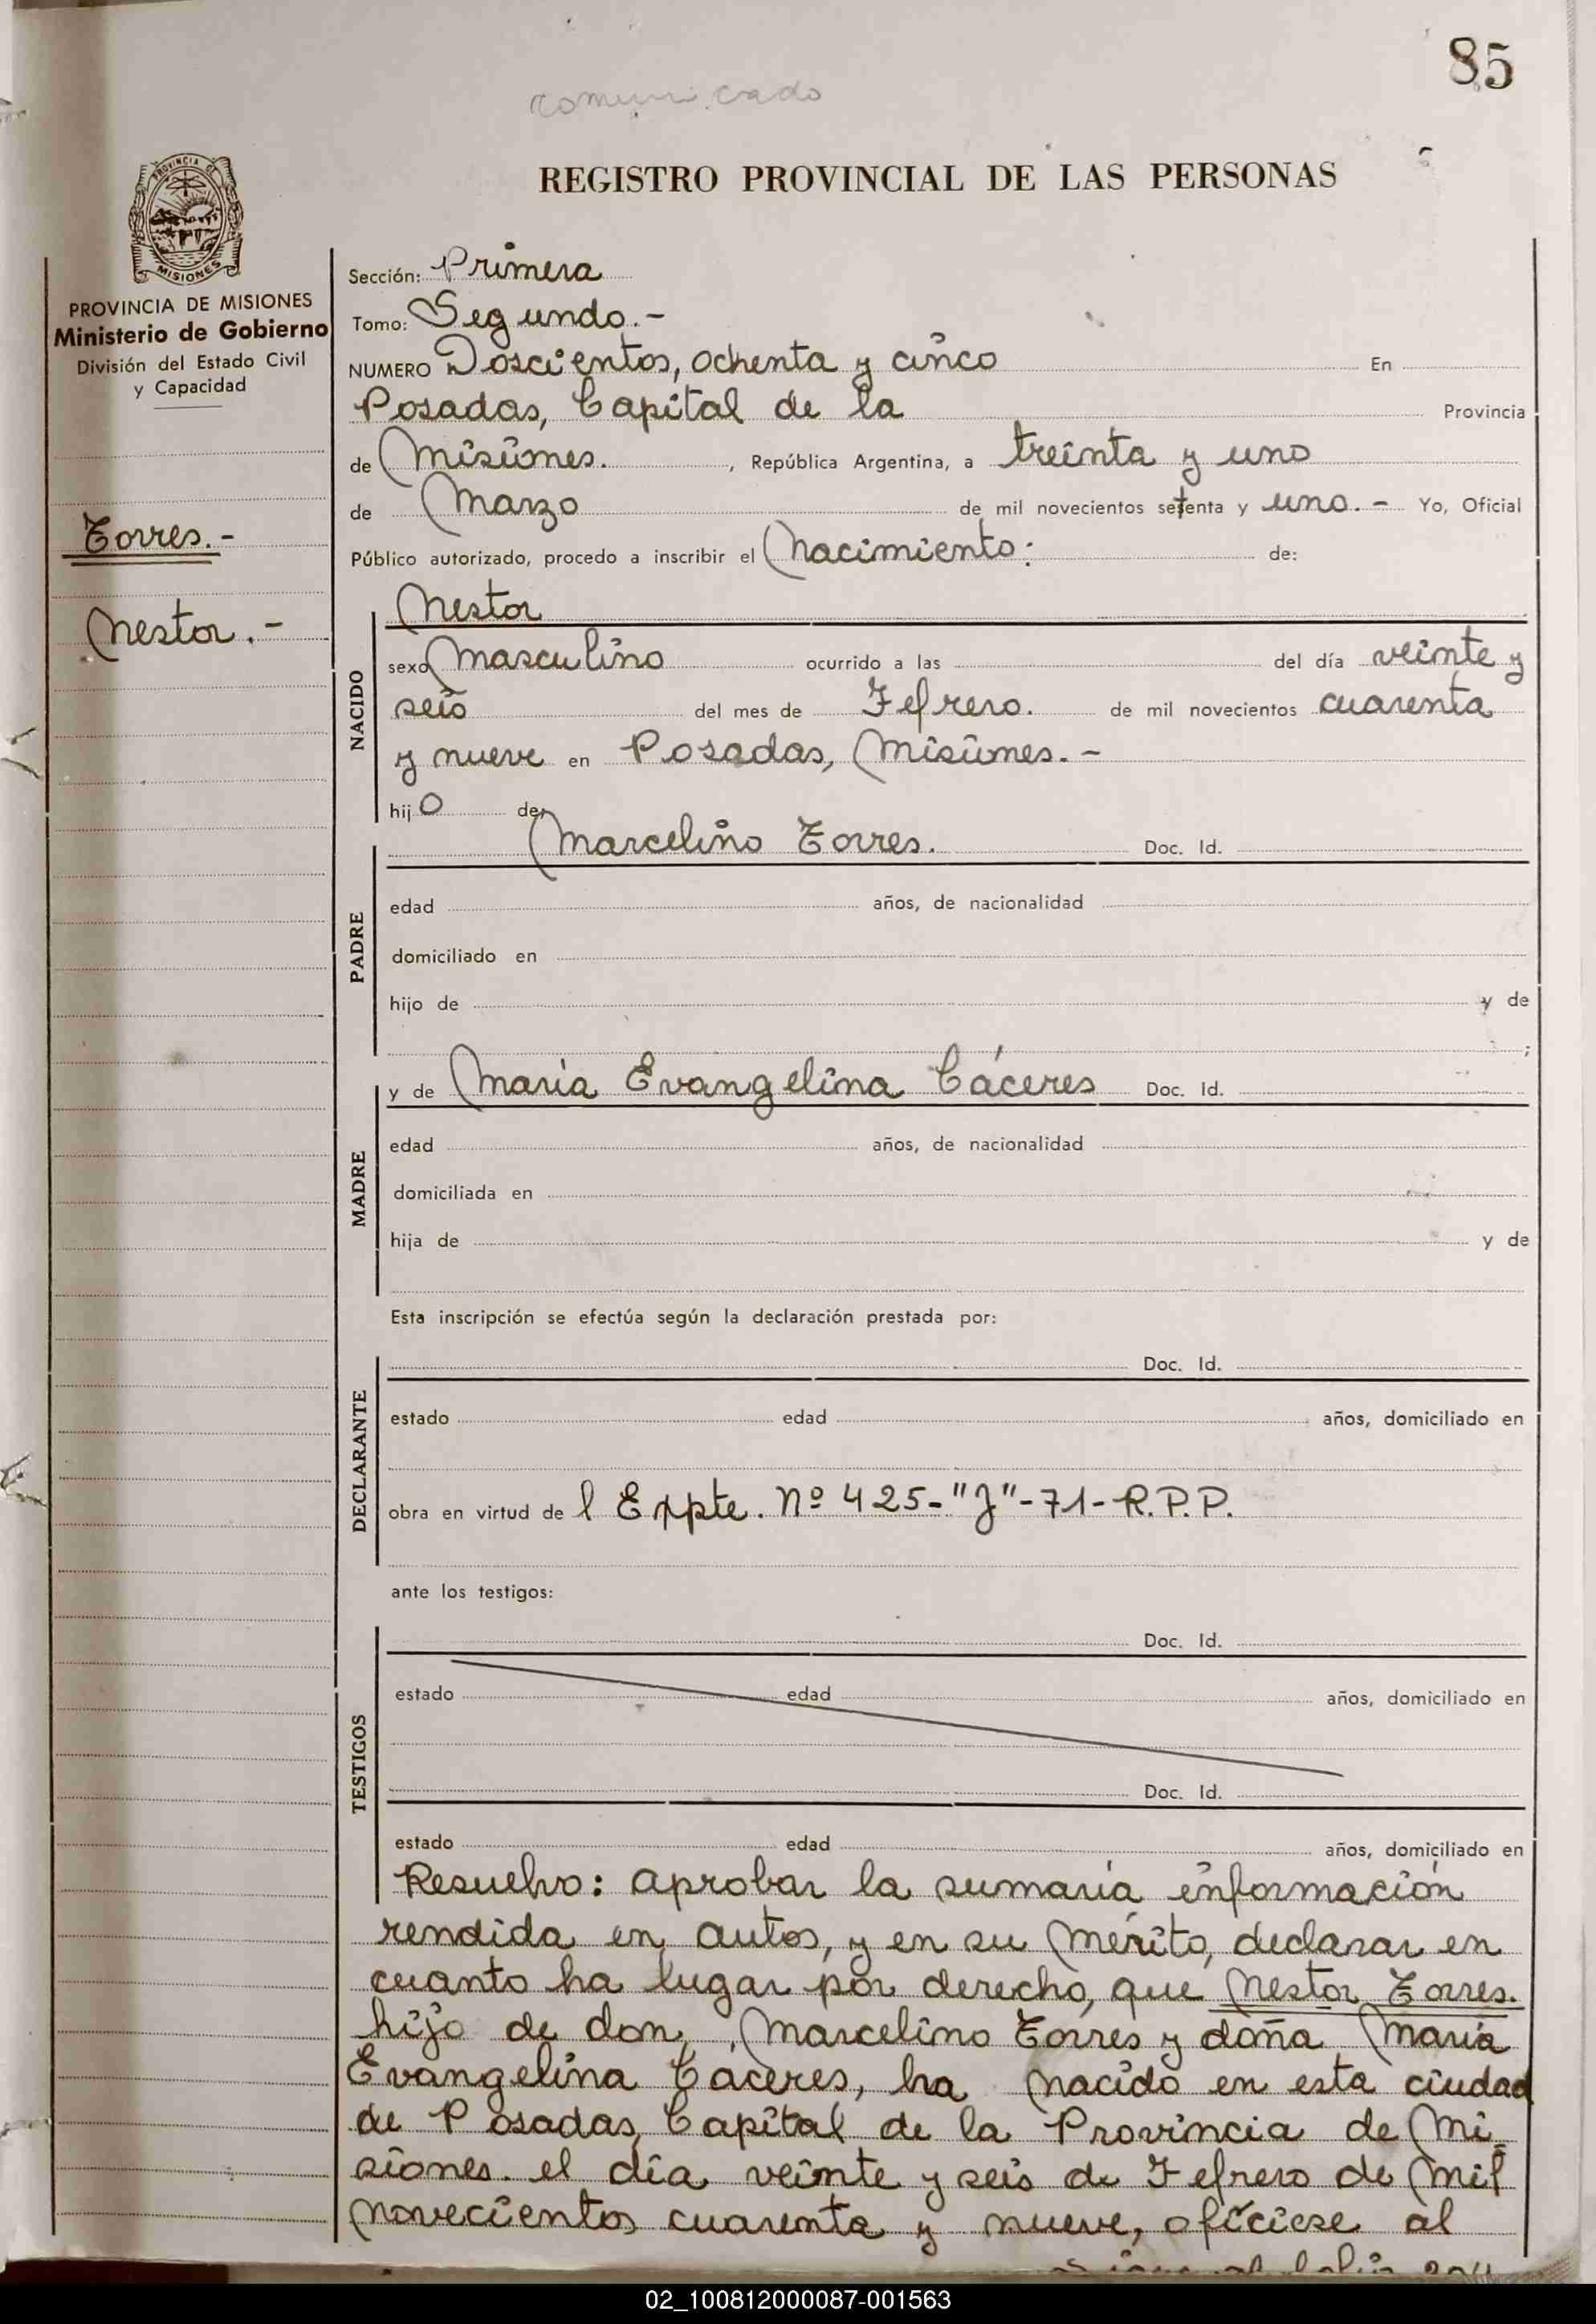 85
comunicado
PROVINCIA DE
MISIONES
REGISTRO PROVINCIAL DE LAS PERSONAS
PROVINCIA DE MISIONES
Ministerio de Gobierno
División del Estado Civil
y Capacidad
Torres.-
Nestor.-
Sección: Primera
Tomo: Segundo.-
NUMERO Doscientos, ochenta y cinco En
Posadas, Capital de la Provincia
de Misiones. , República Argentina, a treinta y uno
de Marzo de mil novecientos setenta y uno.- Yo, Oficial
Público autorizado, procedo a inscribir el Nacimiento: de:
Nestor
NACIDO
sexo Masculino ocurrido a las del día veinte y
seis del mes de Febrero. de mil novecientos cuarenta
y nueve en Posadas, Misiones.-
hijo de
Marcelino Torres. Doc. Id.
PADRE
edad años, de nacionalidad
domiciliado en
hijo de y de
;
y de María Evangelina Cáceres Doc. Id.
MADRE
edad años, de nacionalidad
domiciliada en
hija de y de
Esta inscripción se efectúa según la declaración prestada por:
Doc. Id.
DECLARANTE
estado edad años, domiciliado en
obra en virtud de l Expte. Nº 425-"J"-71-R.P.P.
ante los testigos:
Doc. Id.
TESTIGOS
estado edad años, domiciliado en
Doc. Id.
estado edad años, domiciliado en
Resuelvo: aprobar la sumaría información
rendida en autos, y en su mérito, declarar en
cuanto ha lugar por derecho, que Nestor Torres.
hijo de don, Marcelino Torres y doña María
Evangelina Caceres, ha nacido en esta ciudad
de Posadas, Capital de la Provincia de Mi-
siones. el día veinte y seis de Febrero de mil
novecientos cuarenta y nueve, oficiese al
02_100812000087-001563